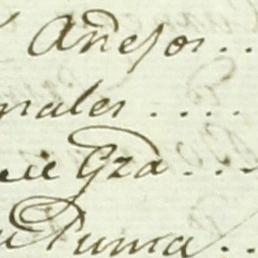 Añejos..
nales....
Gza...
Puma..